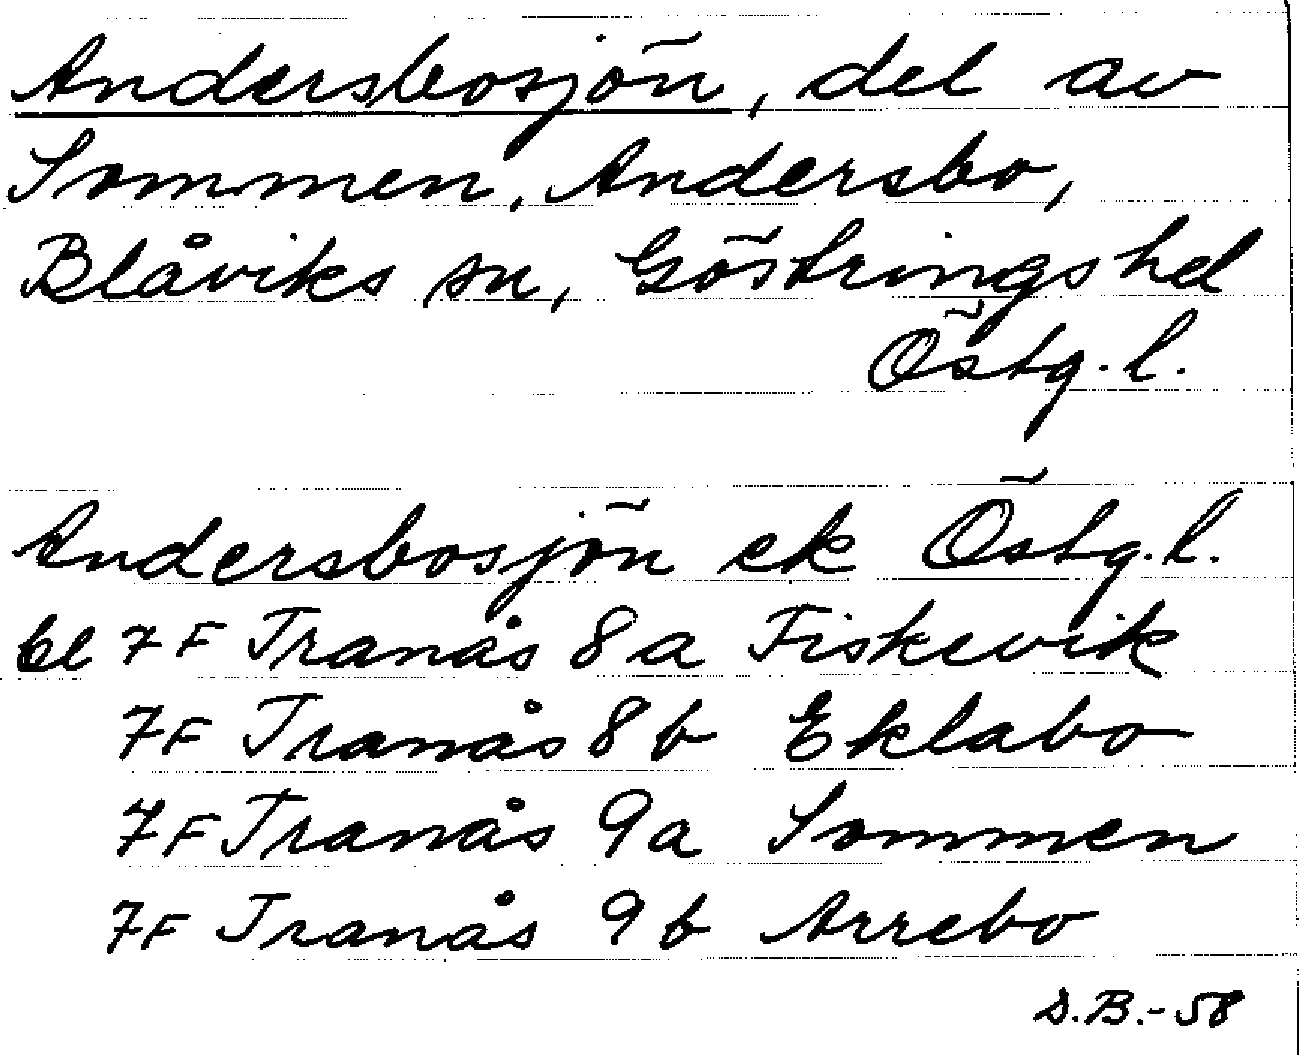 Andersbosjön, del av
Sommen, Andersbo,
Blåviks sn, Göstrings hd
Östg. l.
Andersbosjön ek Östg. l.
bl 7F Tranås 8a Fiskevik
7F Tranås 8b Eklabo
7F Tranås 9a Sommen
7F Tranås 9b Arrebo
S.B.-58